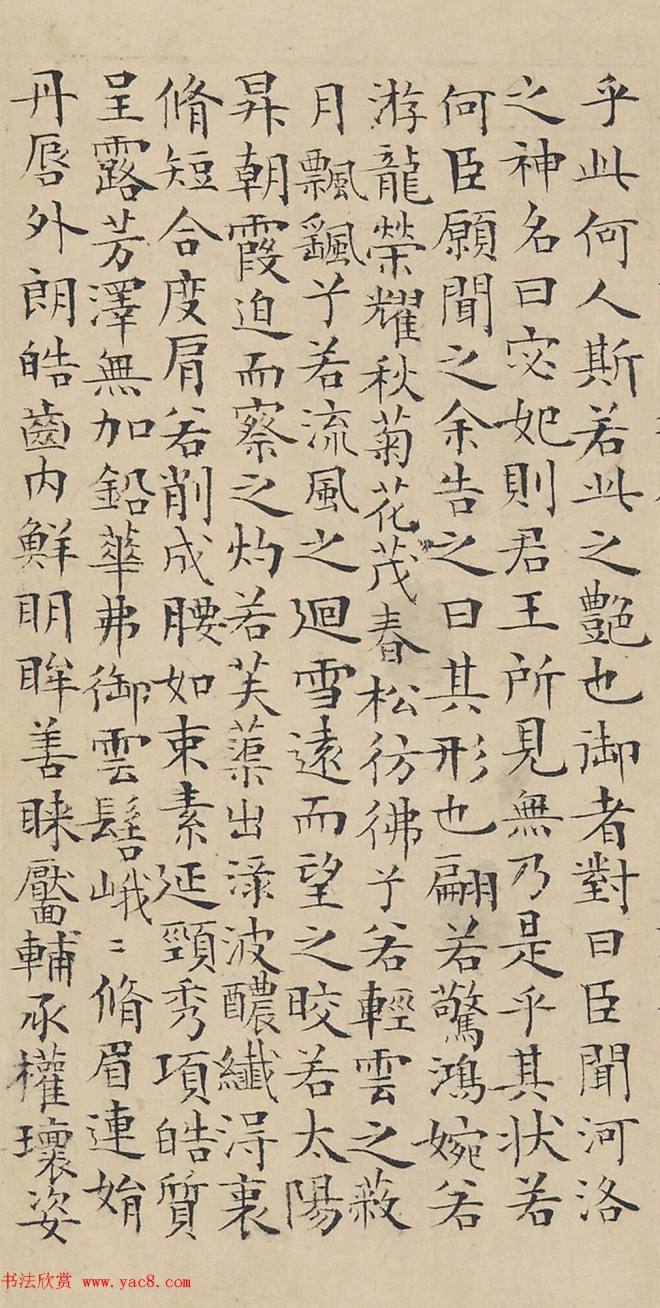 乎此何人斯若此之艷也御者對曰臣聞河洛
之神名曰宓妃則君王所見無乃是乎其状若
何臣願聞之余告之曰其形也翩若驚鴻婉若
游龍榮耀秋菊花茂春松彷彿兮若輕雲之蔽
月飄飖兮若流風之迴雪遠而望之晈若太陽
昇朝霞迫而察之灼若芙蕖出渌波醲纖淂衷
脩短合度肩若削成腰如束素延頸秀項皓質
呈露芳澤無加鉛華弗御雲髻峨〻脩眉連娟
丹脣外朗皓齒內鮮明眸善睐靨輔承權瓌姿
书法欣赏 www.yac8.com